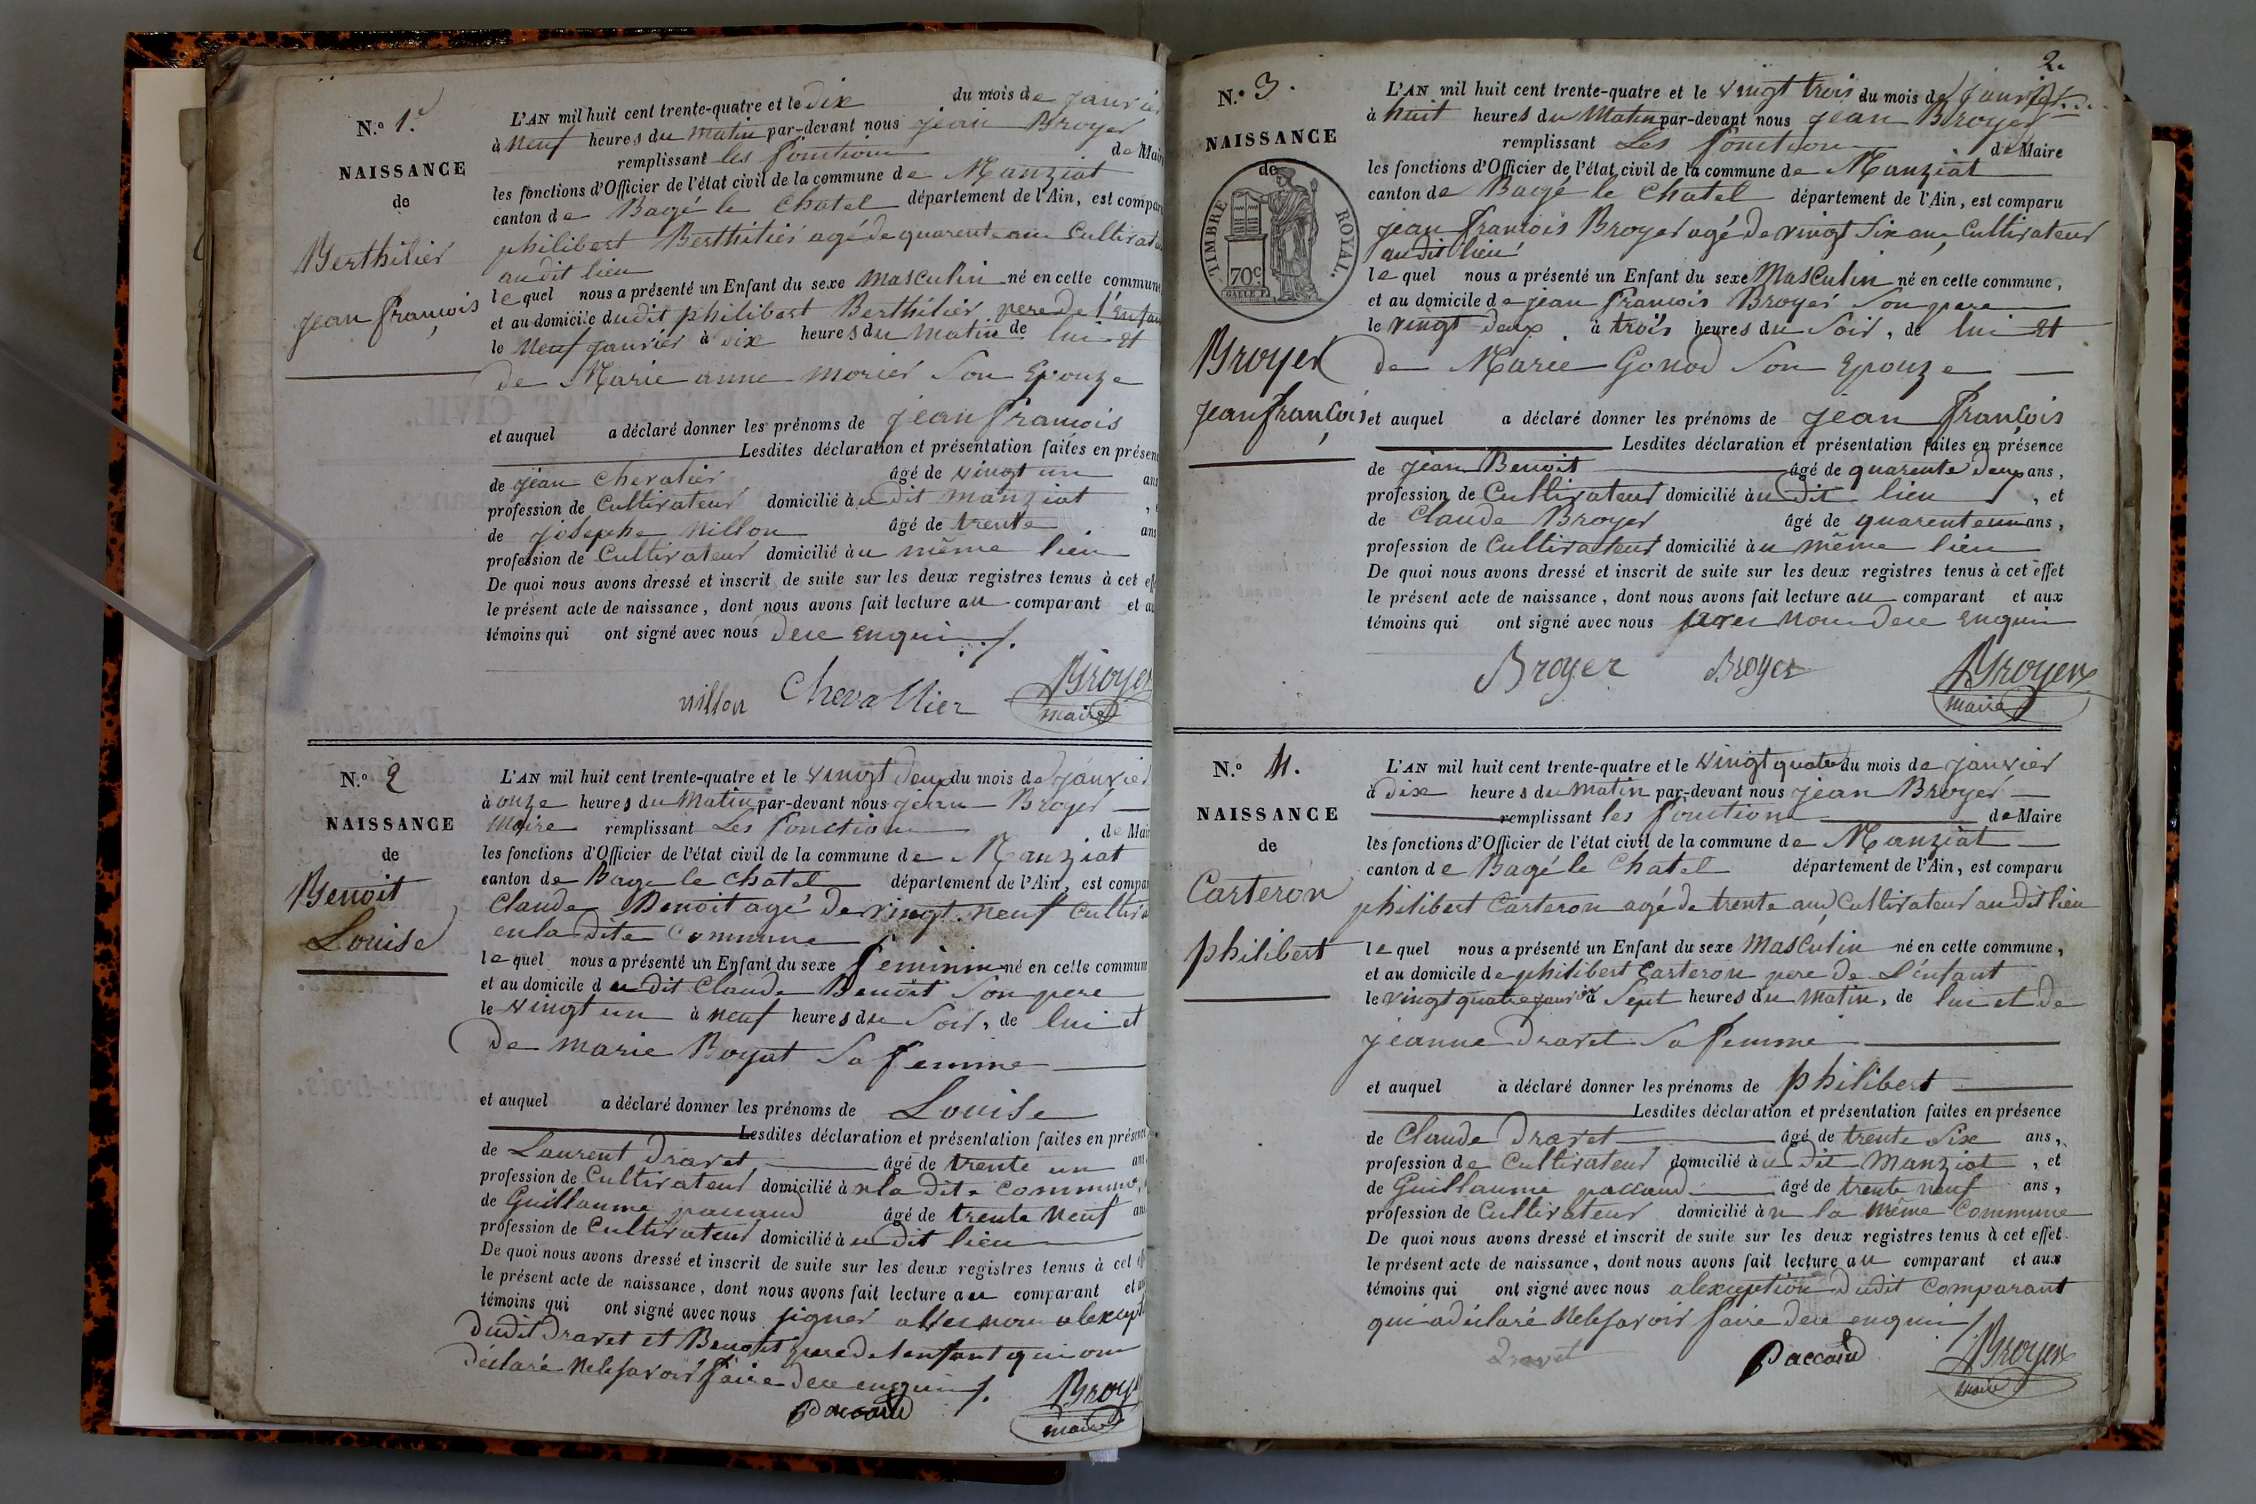 N.o 1.
NAISSANCE
de
Berthilier
jean françois
L'AN mil huit cent trente-quatre et le dix du mois de janvier
à neuf heures du matin par-devant nous jean Broyer
remplissant les fonctions de Maire
les fonctions d'Officier de l'état civil de la commune de Manziat
canton de Bagé le chatel département de l'Ain, est comparu
philibert Berthilier agé de quarente ans Cultivateur
au dit lieu
lequel nous a présenté un Enfant du sexe masculin né en cette commune
et au domicile du dit philibert Berthilier pere de l'enfant
le neuf janvier à six heures du matin de lui et
de Marie anne morier Son Epouze
et auquel a déclaré donner les prénoms de jean françois
Lesdites déclaration et présentation faites en présence
de jean chevalier âgé de vingt un ans
profession de Cultivateur domicilié au dit manziat
de josephe nillon âgé de trente ans
profession de Cultivateur domicilié au même lieu
De quoi nous avons dressé et inscrit de suite sur les deux registres tenus à cet effet
le présent acte de naissance, dont nous avons fait lecture au comparant et aux
témoins qui ont signé avec nous dece enquis ./.
nillon Chevallier Broyer
maire
N.o 2
NAISSANCE
de
Benoit
Louise
L'AN mil huit cent trente-quatre et le vingt deux du mois de janvier
à onze heures du Matin par-devant nous jean Broyer
Maire remplissant Les fonctions de Maire
les fonctions d'Officier de l'état civil de la commune de Manziat
canton de Bage le chatel département de l'Ain, est comparu
Claude Benoit agé de vingt neuf Cultiva
en la dite Commune
lequel nous a présenté un Enfant du sexe feminin né en cette commune
et au domicile du dit Claude Benoit Son pere
le vingt un à neuf heures du Soir, de lui et
de marie Boyat Sa femme
et auquel a déclaré donner les prénoms de Louise
Lesdites déclaration et présentation faites en présence
de Laurent dravet âgé de trente un ans
profession de Cultivateur domicilié à la dite Commune,
de Guillaume paccaud âgé de trente neuf ans
profession de Cultivateur domicilié au dit lieu
De quoi nous avons dressé et inscrit de suite sur les deux registres tenus à cet effet
le présent acte de naissance, dont nous avons fait lecture au comparant et aux
témoins qui ont signé avec nous signer avec nous alexception
dudit dravet et Benoit pere de lenfant qui ont
déclaré nele savoir faire dece enquis ./.
paccaud Broyer
maire
2.
N.o 3.
NAISSANCE
de
TIMBRE ROYAL.
70c
Broyer
jean françois
L'AN mil huit cent trente-quatre et le vingt trois du mois de janvier
à huit heures du Matin par-devant nous jean Broyer
remplissant Les fonctions de Maire
les fonctions d'Officier de l'état civil de la commune de Manziat
canton de Bagé le chatel département de l'Ain, est comparu
jean françois Broyer agé de vingt Six ans, Cultivateur
au dit lieu
lequel nous a présenté un Enfant du sexe Masculin né en cette commune,
et au domicile de jean françois Broyer Son pere
le vingt deux à trois heures du Soir, de lui et
de Marie Gonod Son Epouze
et auquel a déclaré donner les prénoms de jean françois
Lesdites déclaration et présentation faites en présence
de jean Benoit âgé de quarente deux ans,
profession de Cultivateur domicilié au dit lieu, et
de Claude Broyer âgé de quarente un ans,
profession de Cultivateur domicilié au même lieu
De quoi nous avons dressé et inscrit de suite sur les deux registres tenus à cet effet
le présent acte de naissance, dont nous avons fait lecture au comparant et aux
témoins qui ont signé avec nous avec nous dece enquis
Broyer Broyer Broyer
maire
N.o 4.
NAISSANCE
de
Carteron
philibert
L'AN mil huit cent trente-quatre et le vingt quatre du mois de janvier
à dix heures du matin par-devant nous jean Broyer
remplissant les fonctions de Maire
les fonctions d'Officier de l'état civil de la commune de Manziat
canton de Bagé le chatel département de l'Ain, est comparu
philibert Carteron agé de trente ans, Cultivateur au dit lieu
lequel nous a présenté un Enfant du sexe masculin né en cette commune,
et au domicile de philibert Carteron pere de L'enfant
le vingt quatre janvier à Sept heures du matin, de lui et de
jeanne dravet Sa femme
et auquel a déclaré donner les prénoms de philibert
Lesdites déclaration et présentation faites en présence
de Claude dravet âgé de trente Six ans,
profession de Cultivateur domicilié au dit Manziat, et
de Guillaume paccaud âgé de trente neuf ans,
profession de Cultivateur domicilié à la même Commune
De quoi nous avons dressé et inscrit de suite sur les deux registres tenus à cet effet
le présent acte de naissance, dont nous avons fait lecture au comparant et aux
témoins qui ont signé avec nous alexception dudit comparant
qui a déclaré nele savoir faire dece enquis /
dravet paccaud Broyer
maire